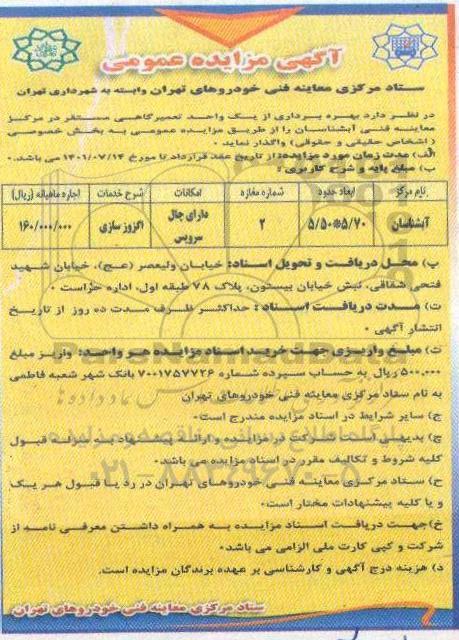 آگهی مزایده عمومی
ستاد مرکزی معاینه فنی خودروهای تهران وابسته به شهرداری تهران
در نظر دارد بهره برداری از یک واحد تعمیرگاهی مستقر در مرکز
معاینه فنی آبشناسان را از طریق مزایده عمومی به بخش خصوصی
(اشخاص حقیقی و حقوقی) واگذار نماید.
الف) مدت زمان مورد مزایده: از تاریخ عقد قرارداد تا مورخ ۱۴۰۱/۰۷/۱۴ می باشد.
ب) مبلغ پایه و شرح کاربری:
نام مرکز ابعاد حدود شماره مغازه امکانات شرح خدمات اجاره ماهیانه (ریال)
آبشناسان ۵/۵۰*۵/۷۰ ۲ دارای چال سرویس اگزوز سازی ۱۶۰/۰۰۰/۰۰۰
پ) محل دریافت و تحویل اسناد: خیابان ولیعصر (عج)، خیابان شهید
فتحی شقاقی، نبش خیابان بیستون، پلاک ۷۸ طبقه اول، اداره حراست.
ت) مدت دریافت اسناد: حداکثر ظرف مدت ده روز از تاریخ
انتشار آگهی.
ث) مبلغ واریزی جهت خرید اسناد مزایده هر واحد: واریز مبلغ
۵۰۰,۰۰۰ ریال به حساب سپرده شماره ۷۰۰۱۷۵۷۷۲۶ بانک شهر شعبه فاطمی
به نام ستاد مرکزی معاینه فنی خودروهای تهران
ج) سایر شرایط در اسناد مزایده مندرج است.
چ) بدیهی است شرکت در مزایده و ارائه پیشنهاد به منزله قبول
کلیه شروط و تکالیف مقرر در اسناد مزایده می باشد.
ح) ستاد مرکزی معاینه فنی خودروهای تهران در رد یا قبول هر یک
و یا کلیه پیشنهادات مختار است.
خ) جهت دریافت اسناد مزایده به همراه داشتن معرفی نامه از
شرکت و کپی کارت ملی الزامی می باشد.
د) هزینه درج آگهی و کارشناسی بر عهده برندگان مزایده است.
ستاد مرکزی معاینه فنی خودروهای تهران